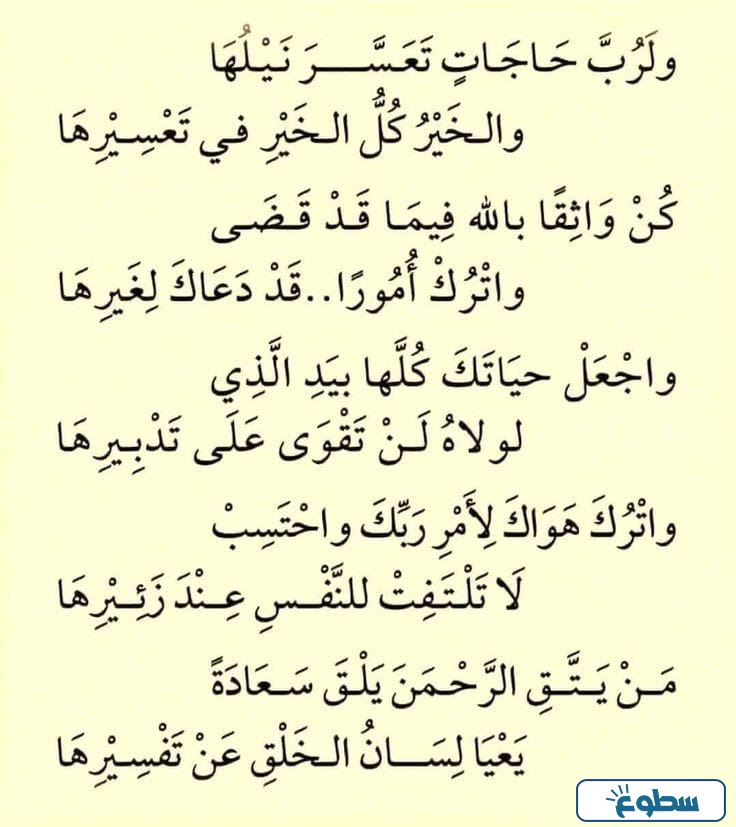 ولَرُبَّ حَاجَاتٍ تَعَسَّـــرَ نَيْلُهَا
والـخَيْرُ كُلُّ الـخَيْرِ فـي تَعْسِـيْرِهَا
كُنْ وَاثِقًا بالله فِيمَـا قَـدْ قَـضَـى
واتْرُكْ أُمُورًا..قَدْ دَعَاكَ لِغَيرِهَا
واجْعَلْ حيَاتَكَ كُلَّها بيَدِ الَّذِي
لولاهُ لَـنْ تَقْوَى عَلَى تَدْبِـيرِهَا
واتْرُكَ هَوَاكَ لِأَمْرِ رَبِّكَ واحْتَسِبْ
لَا تَلْـتَـفِتْ للنَّفْـسِ عِـنْدَ زَئِـيْرِهَا
مَـنْ يَـتَّـقِ الرَّحْـمَنَ يَلْقَ سَـعَادَةً
يَعْيَا لِسَــانُ الـخَلْقِ عَنْ تَفْسِـيْرِهَا
سطوع